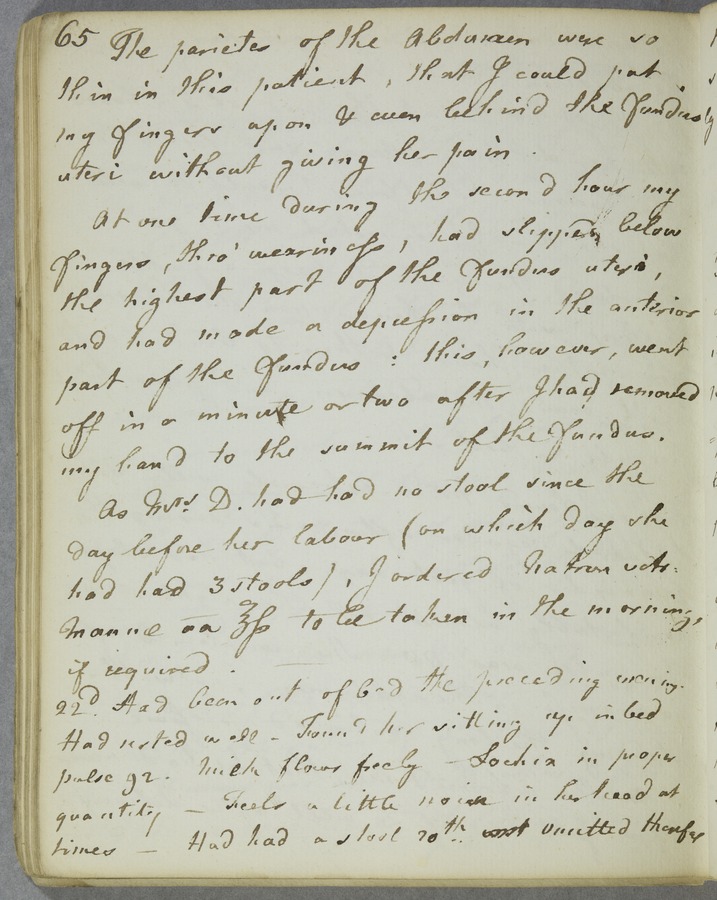 65 The parietes of the Abdomen were so
thin in this patient, that I could put
my fingers upon & even behind the fundus
uteri without giving her pain.
At one time during the second hour my
fingers, thro' weariness, had slipped below
the highest part of the fundus uteri,
and had made a depression in the anterior
part of the fundus: this, however, went
off in a minute or two after I had removed
my hand to the summit of the fundus.
As Mrs. D. had had no stool since the
day before her labour (on which day she
had had 3 stools), I ordered Natron vitr.
Mannæ aa ℥ß to be taken in the morning,
if required. —
22d. Had been out of bed the preceding evening.
Had rested well - Found her sitting up in bed
pulse 92. Milk flows freely - Lochia in proper
quantity — Feels a little noise in her head at
times — Had had a stool 20th. omitted therefore